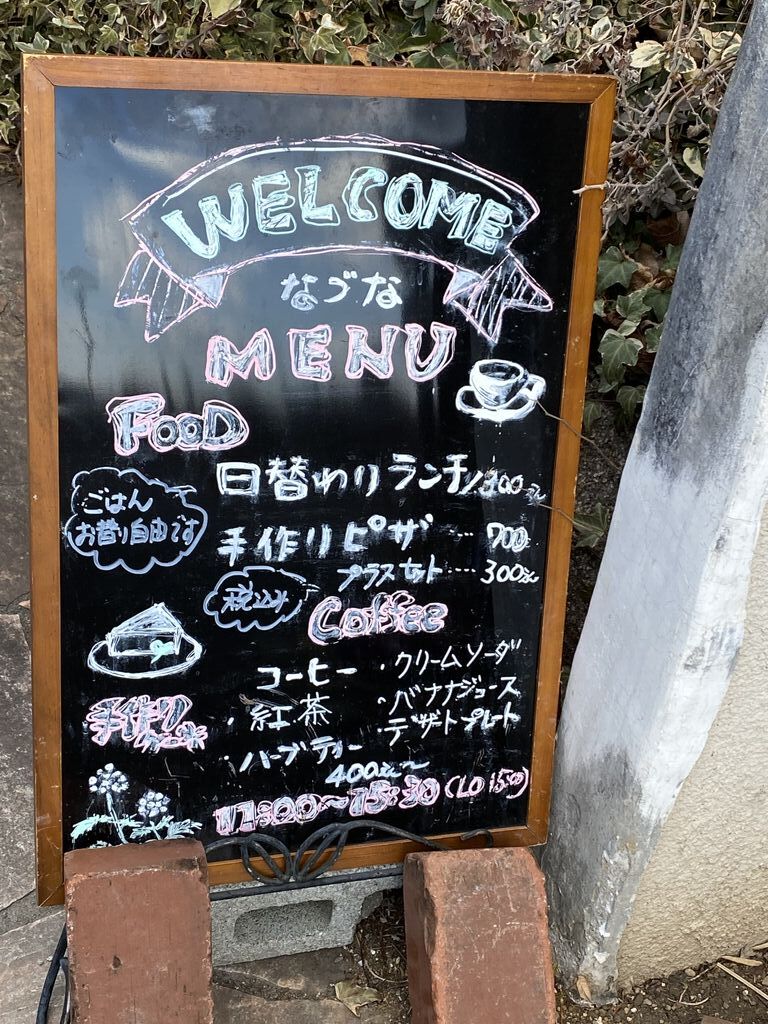 WELCOME
なづな
MENU
FOOD
日替わりランチ
ごはん
お替り自由です
手作りピザ … 700
プラスセット … 300
税込み
Coffee
コーヒー
・紅茶
・ハーブティー
・クリームソーダ
・バナナジュース
・デザートプレート
手作りケーキ
400円～
11:00～15:30 (LO 15:00)